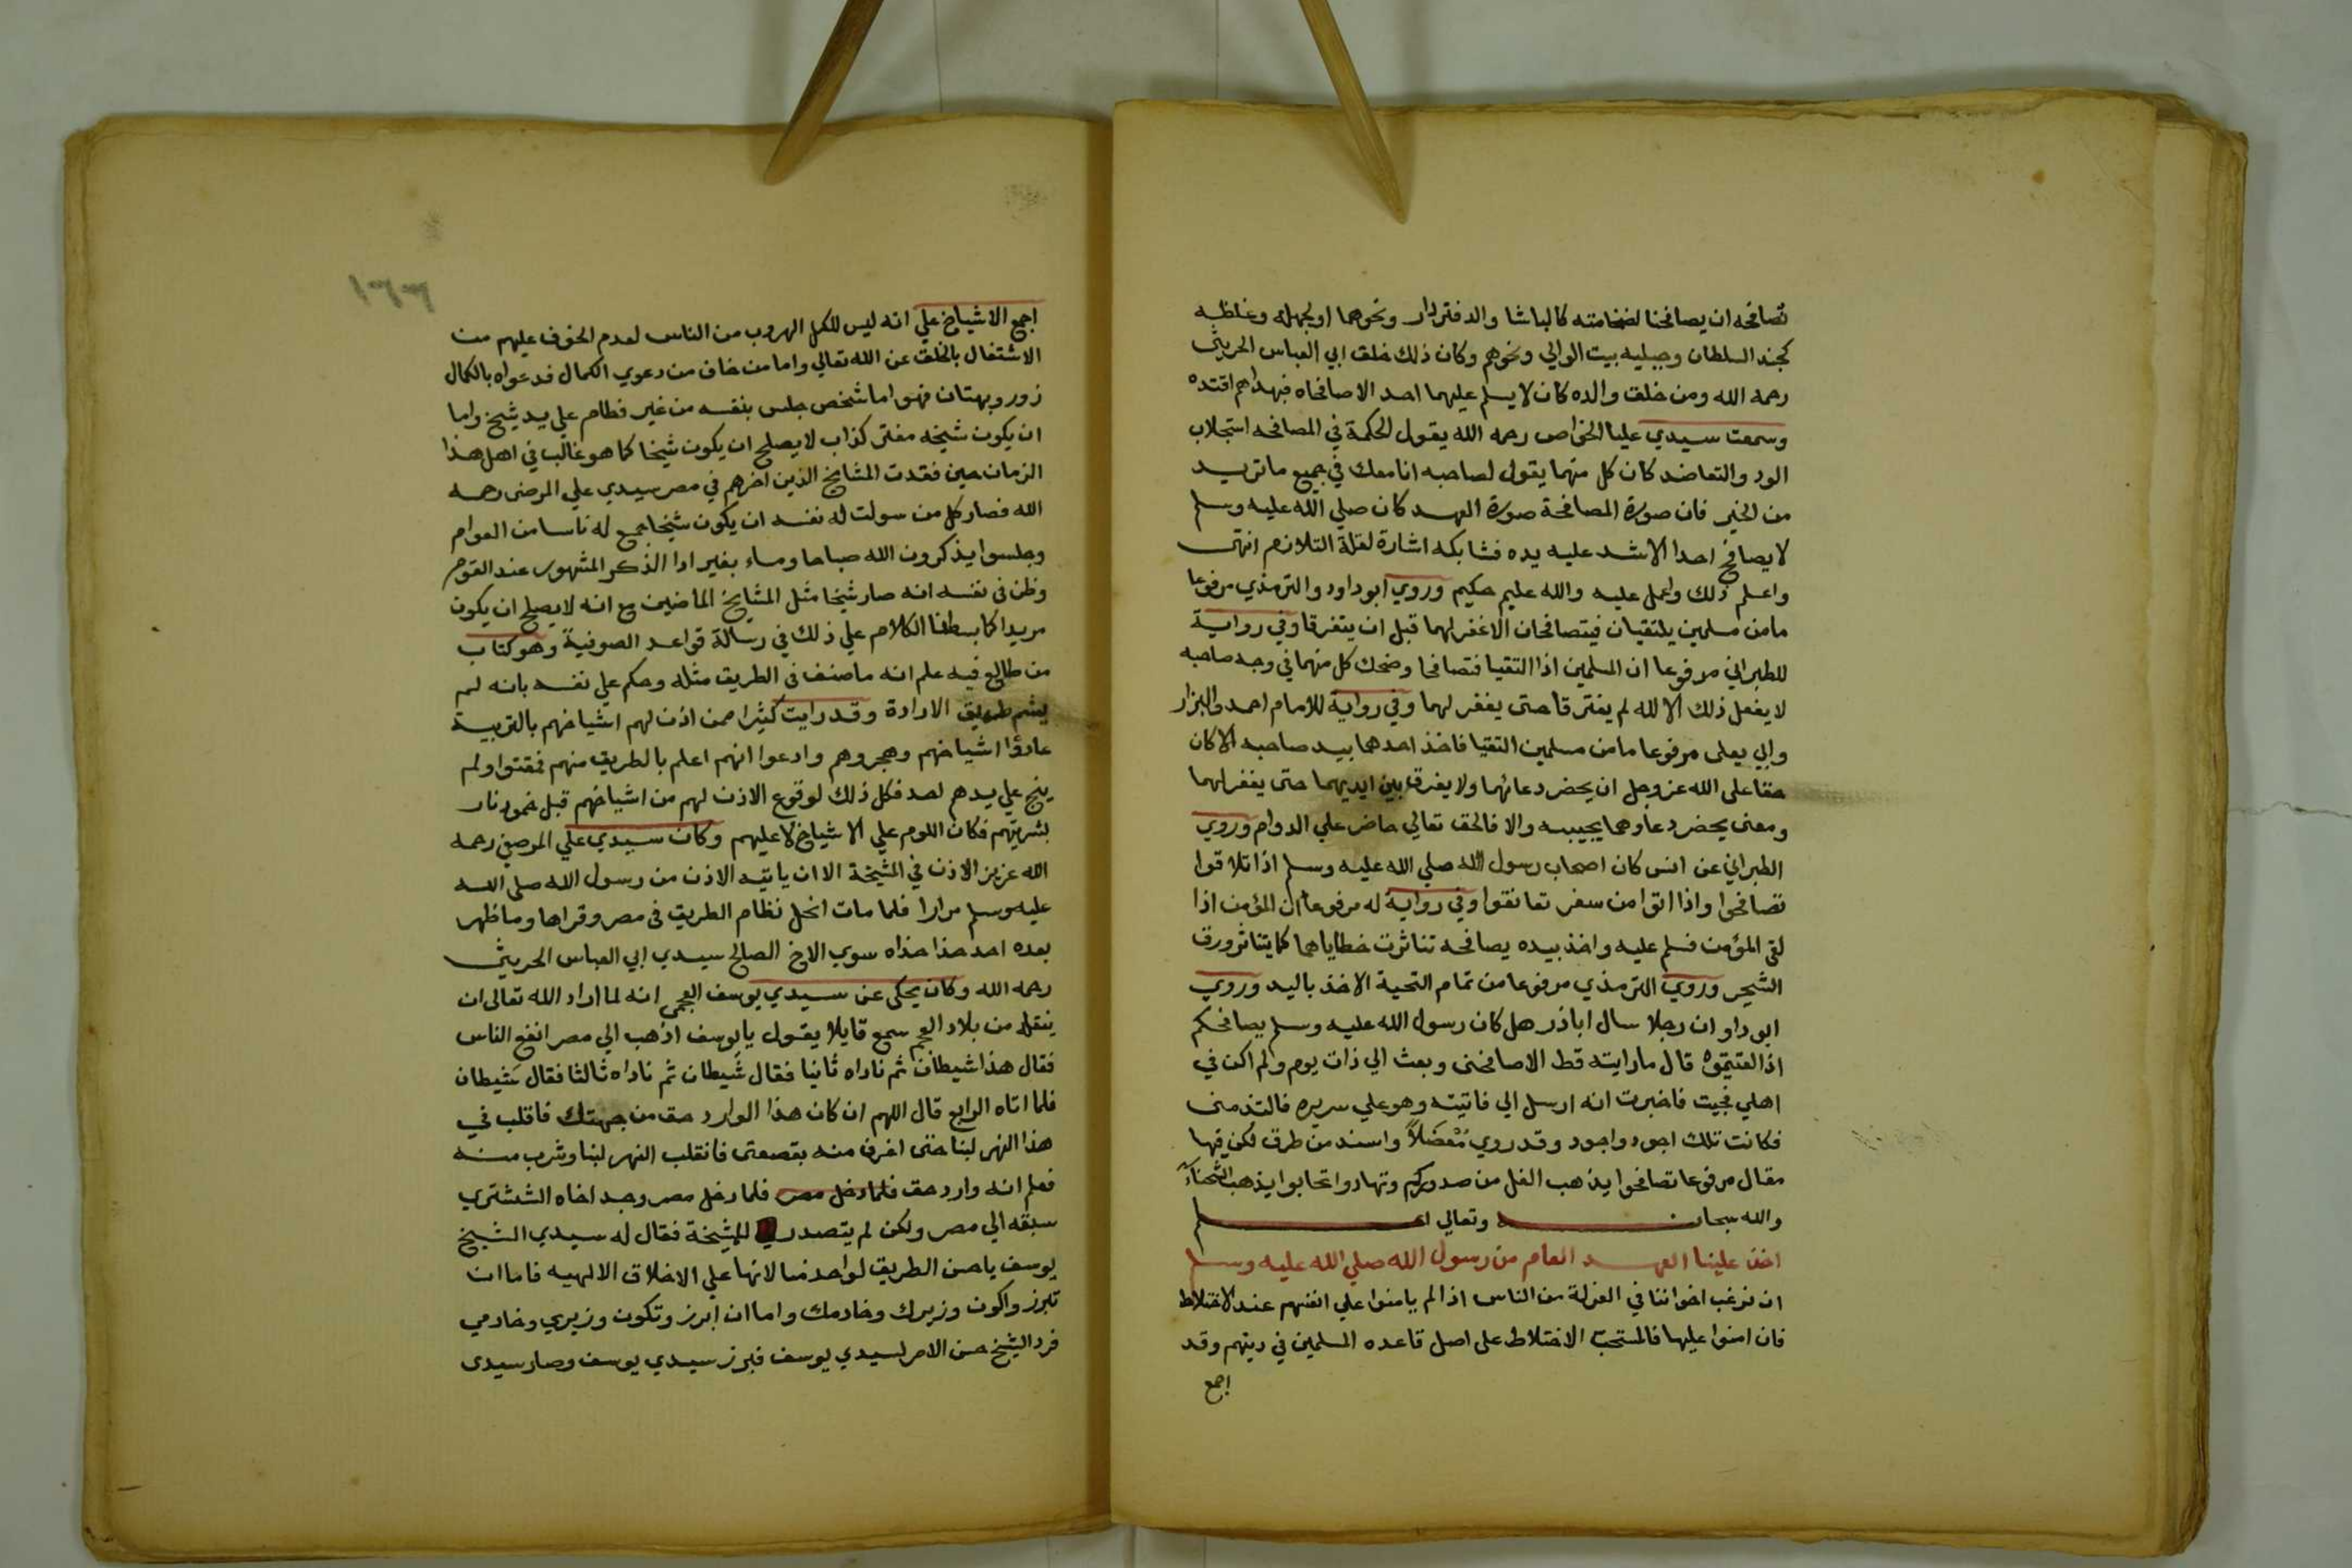 تصافحه ان يصافحنا لضخامته كالباشا والدفتردار ونحوهما او لجهله وغلظه
كجند السلطان وجبليه بيت الوالي ونحوهم وكان ذلك خلق ابي العباس الحريثى
رحمه الله ومن خلق والده كان لا يسلم عليهما احد الا صافحاه فبهداهم اقتده
وسمعت سيدي عليا الخواص رحمه الله يقول الحكمة في المصافحه استجلاب
الود والتعاضد كان كل منهما يقول لصاحبه انا معك في جميع ما تريد
من الخير فان صورة المصافحة صورة العهد كان صلي الله عليه وسلم
لا يصافح احدا الا شد عليه يده فشابكه اشارة لغلة التلازم انتهى
واعلم ذلك واعمل عليه والله عليم حكيم وروي ابو داود والترمذي مرفوعا
ما من مسلمين يلتقيان فيتصافحان الا غفر لهما قبل ان يتفرقا وفي رواية
للطبراني مرفوعا ان المسلمين اذا التقيا فتصافحا وضحك كل منهما في وجه صاحبه
لا يفعل ذلك الا لله لم يفترقا حتى يغفر لهما وفي رواية للامام احمد والبزار
وابي يعلى مرفوعا ما من مسلمين التقيا فاخذ احدهما بيد صاحبه الا كان
حقا على الله عز وجل ان يحضر دعائهما ولا يفرق بين ايديهما حتى يغفر لهما
ومعنى يحضر دعاوهما يجيبه والا فالحق تعالي حاضر علي الدوام وروي
الطبراني عن انس كان اصحاب رسول الله صلي الله عليه وسلم اذا تلاقوا
تصافحوا واذا اتوا من سفر تعانقوا وفي رواية له مرفوعا ان المؤمن اذا
لقى المؤمن فسلم عليه واخذ بيده يصافحه تناثرت خطاياهما كما يتناثر ورق
الشجر وروي الترمذي مرفوعا من تمام التحية الاخذ باليد وروي
ابو داو ان رجلا سال اباذر هل كان رسول الله عليه وسلم يصافحكم
اذا لقيتموه قال ما رايته قط الا صافحنى وبعث الي ذات يوم ولم اكن في
اهلي فجيت فاخبرت انه ارسل الي فاتيته وهو علي سريره فالتزمنى
فكانت تلك اجود واجود وقد روي مُعْضَلاً واسند من طرق لكن فيها
مقال مرفوعا تصافحوا يذهب الغل من صدوركم وتهادوا تحابوا يذهب الشحنآء
والله سبحانه وتعالي اعلم
اخذ علينا العهد العام من رسول الله صلي الله عليه وسلم
ان نرغب اخواننا في العزلة من الناس اذا لم يامنوا علي انفسهم عند الاختلاط
فان امنوا عليها فالمستحبّ الاختلاط على اصل قاعده المسلمين في دينهم وقد
اجمع
١٦٦
اجمع الاشياخ علي انه ليس للكمل الهروب من الناس لعدم الخوف عليهم من
الاشتغال بالخلق عن الله تعالي واما من خاف من دعوي الكمال فدعواه بالكمال
زور وبهتان فهو اما شخص جلس بنفسه من غير فطام علي يد شيخ واما
ان يكون شيخه مفتر كذاب لا يصلح ان يكون شيخا كما هو غالب في اهل هذا
الزمان حين فقدت المشايخ الذين اخرهم في مصر سيدي علي المرصفى رحمه
الله فصار كل من سولت له نفسه ان يكون شيخا جمع له ناسا من العوام
وجلسوا يذكرون الله صباحا ومساء بغير ادا الذكر المشهور عند القوم
وظن في نفسه انه صار شيخا مثل المشايخ الماضيين مع انه لا يصلح ان يكون
مريدا كما بسطنا الكلام علي ذلك في رسالة قواعد الصوفية وهو كتاب
من طالع فيه علم انه ما صنف في الطريق مثله وحكم علي نفسه بانه لم
يشم طريق الارادة وقد رايت كثيرا ممن اذن لهم اشياخهم بالتربية
عادوا اشياخهم وهجروهم وادعوا انهم اعلم بالطريق منهم فمقتوا ولم
ينج علي يدهم احد فكل ذلك لوقوع الاذن لهم من اشياخهم قبل خمود نار
بشريتهم فكان اللوم علي الاشياخ لا عليهم وكان سيدي علي المرصفي رحمه
الله عزيز الاذن في المشيخة الا ان ياتيه الاذن من رسول الله صلى الله
عليه وسلم مرارا فلما مات انحل نظام الطريق في مصر وقراها وما ظهر
بعده احد حذا حذاه سوي الاخ الصالح سيدي ابي العباس الحريثى
رحمه الله وكان يحكى عن سيدي يوسف العجمى انه لما اراد الله تعالى ان
ينقله من بلاد العجم سمع قايلا يقول يا يوسف اذهب الي مصر انفع الناس
فقال هذا شيطان ثم ناداه ثانيا فقال شيطان ثم ناداه ثالثا فقال شيطان
فلما اتاه الرابع قال اللهم ان كان هذا الوارد حق من جهتك فاقلب في
هذا النهر لبنا حتى اغرف منه بقصعتى فانقلب النهر لبنا وشرب منه
فعلم انه وارد حق فلما دخل مصر فلما دخل مصر وجد اخاه الششتري
سبقه الي مصر ولكن لم يتصدر للمشيخة فقال له سيدي الشيخ
يوسف يا حسن الطريق لواحد منا لانها علي الاخلاق الالهيه فاما ان
تبرز واكون وزيرك وخادمك واما ان ابرز وتكون وزيري وخادمي
فرد الشيخ حسن الامر لسيدي يوسف فبرز سيدي يوسف وصار سيدى